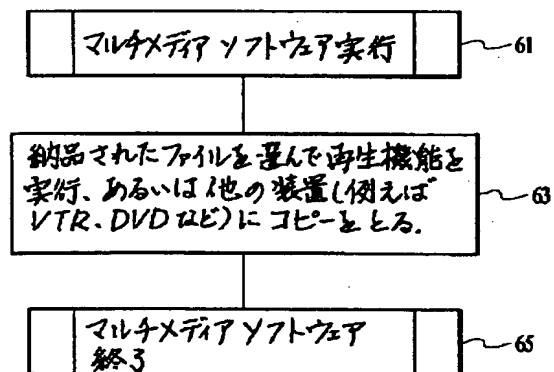 マルチメディア ソフトウェア実行
61
納品されたファイルを選んで再生機能を
実行、あるいは他の装置(例えば
VTR、DVDなど)にコピーをとる.
63
マルチメディア ソフトウェア
終了
65